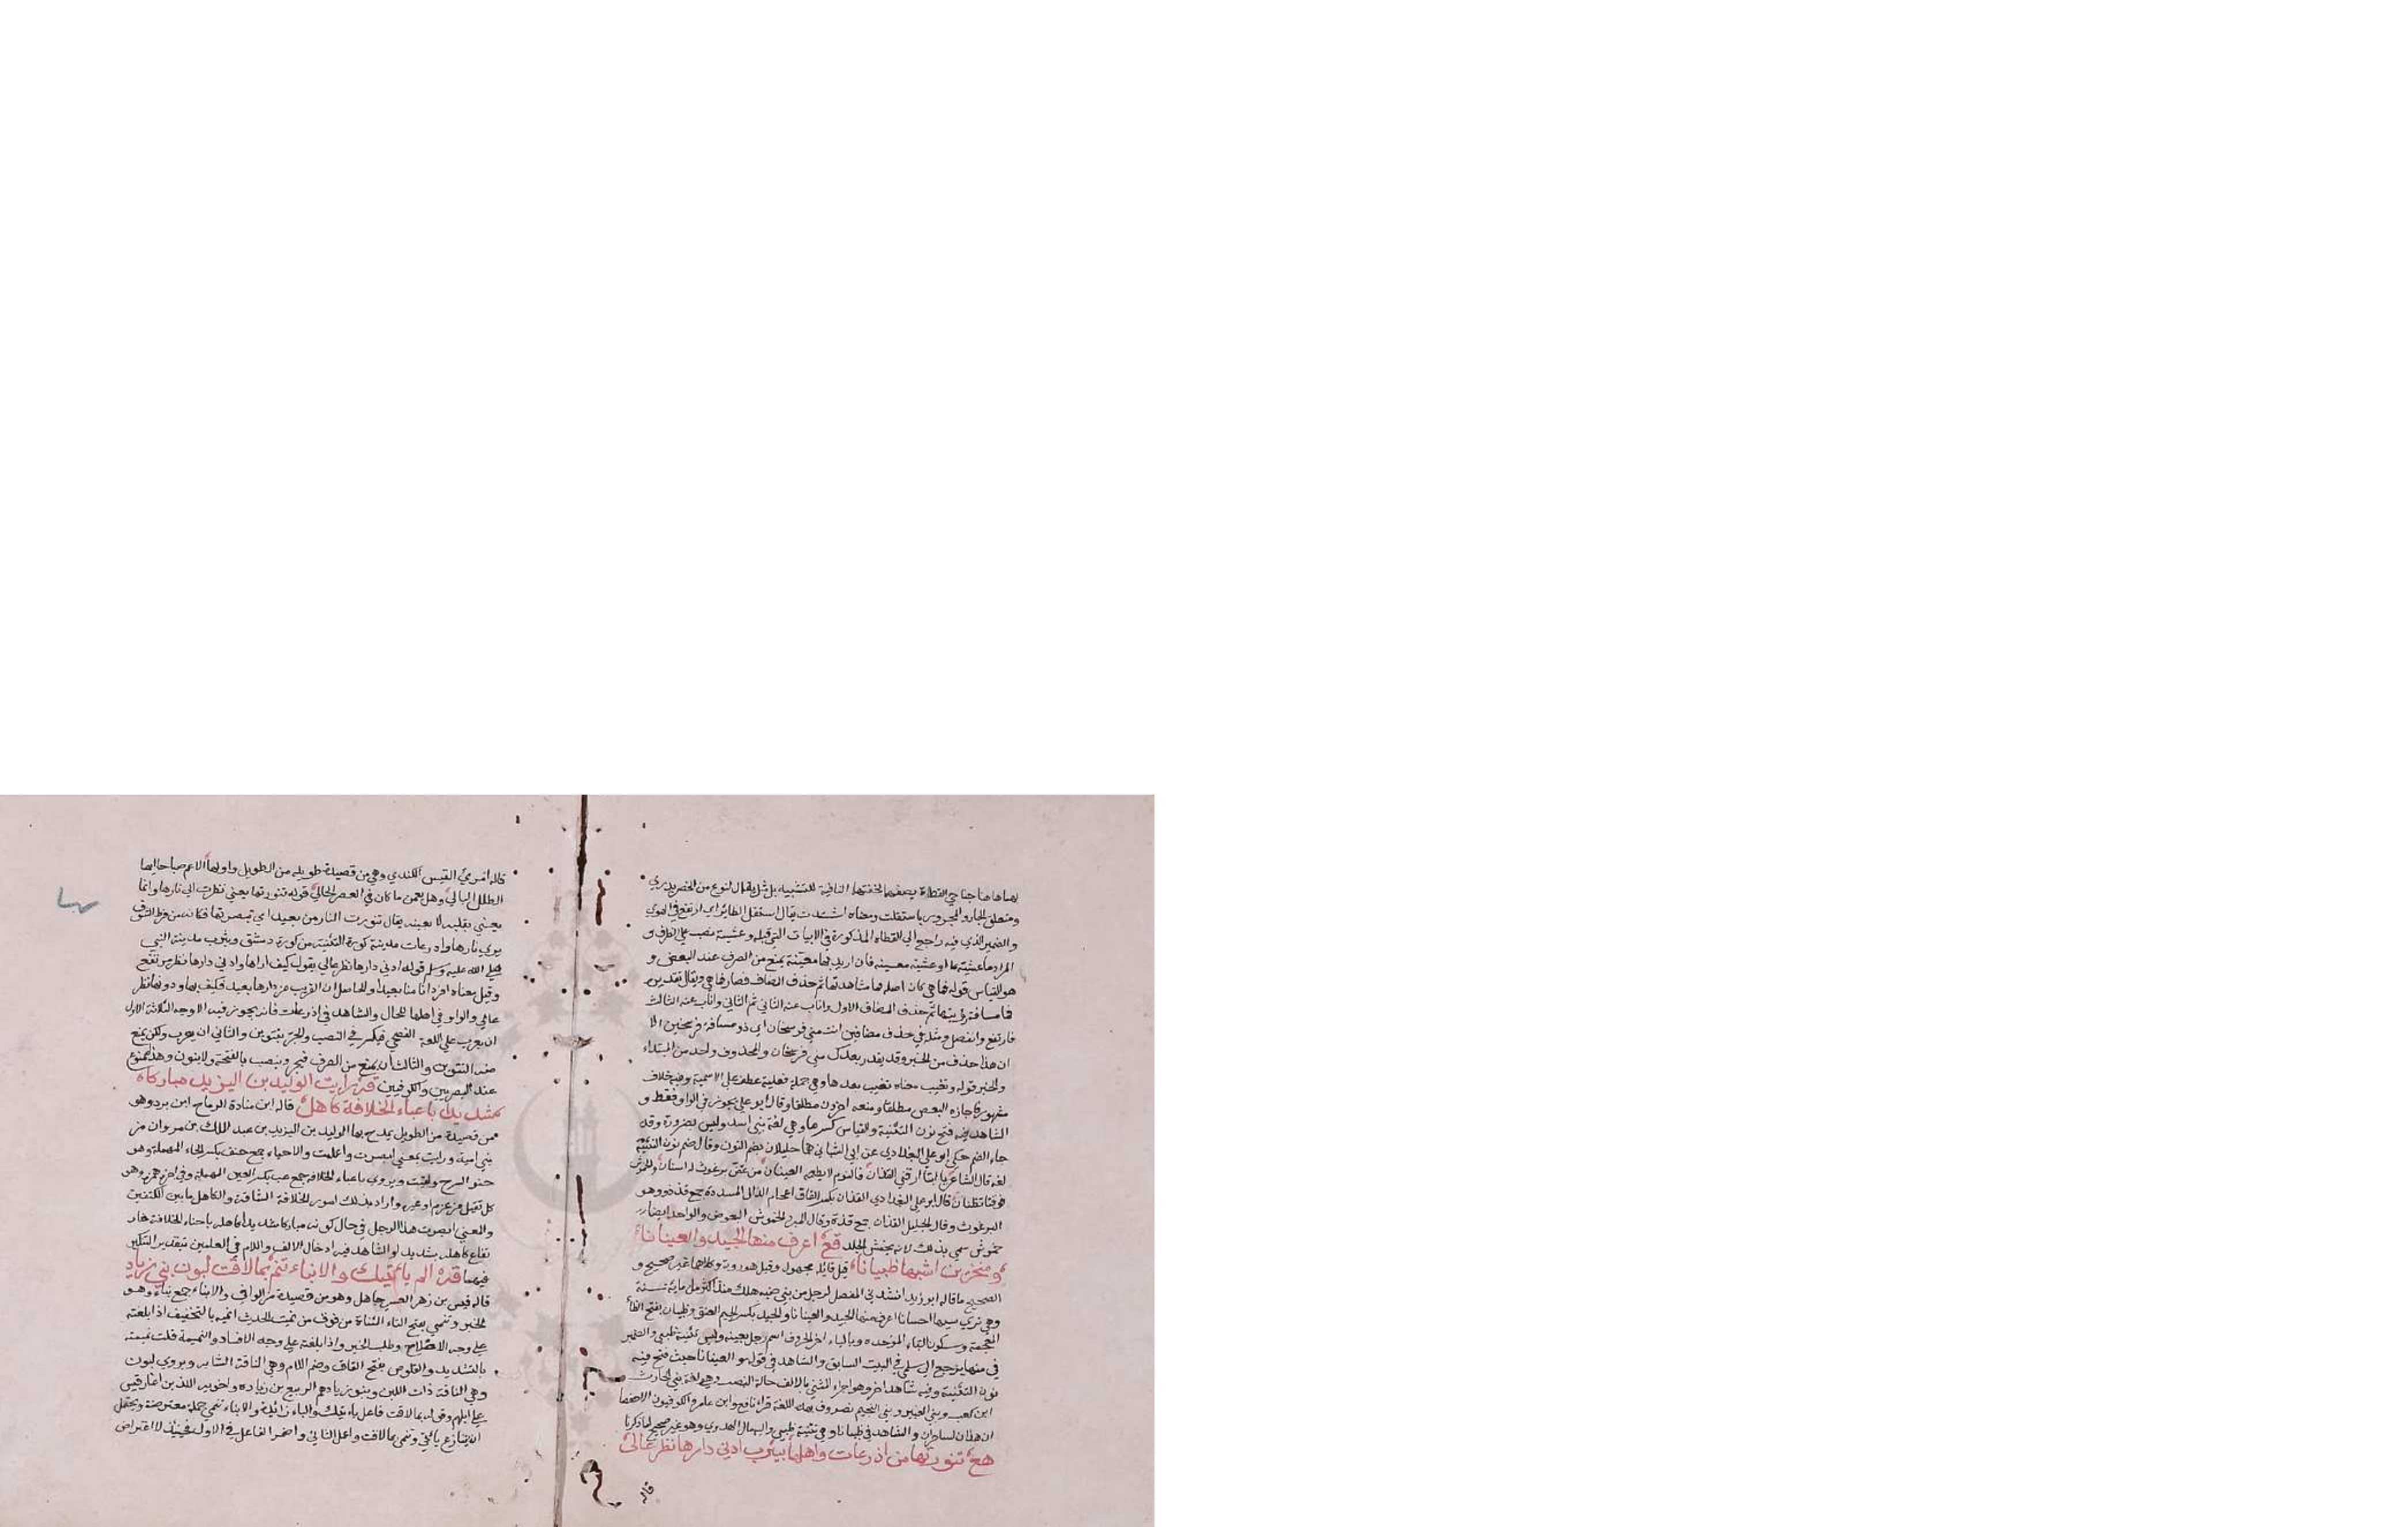 بهما هاهنا جناحي القطاة يصفهما لخفتها
ومتعلق الجار والمجرور باستقلت ومعناه يقال استقل الطائر اي ارتفع في الهوي
والضمير الذي فيه راجع الي القطاه المذكورة في الابيات التي قبله وعشية نصب علي الظرف و
المراد بها عشية ما او عشية معينه فان اريد بها معينة يمنع من الصرف عند البعض و
هو القياس قوله فما هي كان اصله ثم حذف المضاف فصار فما هي ويقال تقديره
فما مسافة رؤيتها ثم حذف المضاف الاول واناب عنه الثاني ثم الثاني واناب عنه الثالث
فارتفع وانفصل ومثله في حذف مضافين انت مني فرسخان اي ذو مسافة فرسخين الا
ان هذا حذف من الخبر وقد يقدر بعدك مني فرسخان والمحذوف واحد من المبتداء
والخبر قوله وتغيب معناه تغيب بعدها وهي جملة فعلية عطف علي الاسمية وفيه خلاف
مشهور فاجازه البعض مطلقا ومنعه اخرون مطلقا وقال ابو علي يجوز في الواو فقط و
الشاهد فيه فتح نون التثنية والقياس كسرها وهي لغة بني اسد وليس بضرورة وقد
جاء الضم حكي ابو علي البغدادي عن ابي الشيباني هما خليلان بضم النون وقال ضم نون التثنية
لغة قال الشاعر يا ابتا ارقني القذان فالنوم لا يطعمه العينان من عض برغوث له اسنان وللخموش
فوقنا تظنان قال ابو علي البغدادي القذان بكسر القاف اعجام الذال المسددة جمع قذذ وهو
البرغوث وقال الخليل القذان جمع قذة وقال المبرد الخموش البعوض والواحد ايضا
خموش سمي بذلك لانه يخمش الجلد قع اعرف منها الجيد والعينانا
ومنخرين اشبها ظبيانا قيل قايله مجهول وقيل هو روبة وكلاهما غير صحيح و
الصحيح ما قاله ابو زيد انشدني المفضل لرجل من بني ضبه هلك منذ اكثر من ماية سنة
وهي تري سيئها احسانا اعرف منها الجيد والعينانا والجيد بكسر الجيم العنق وظبيان بفتح الظاء
المعجمة وسكون الباء الموحده وبالياء اخر الحروف اسم رجل بعينه وليس تثنية ظبي والضمير
في منها يرجع الي سلمي في البيت السابق والشاهد في قوله والعينانا حيث فتح فيه
نون التثنية وفيه شاهد اخر وهو اجراء المثني بالالف حالة النصب وهي لغة بني الحارث
ابن كعب وبني العنبر وبني الهجيم قراء نافع وابن عامر والكوفيون الا حفصا
ان هذان لساحران والشاهد في ظبيانا وهي تثنية ظبي واليه مال الهروي وهو غير صحيح لما ذكرنا
هع تنورتها من اذرعات واهلها بيثرب ادني دارها نظر عالي
قاله
قاله امرؤ القيس الكندي وهي من قصيدة طويله من الطويل واولها الا عم صباحا ايها
الطلل البالي وهل يعمن من كان في العصر الخالي قوله تنورتها يعني نظرت الي نارها وانما
يعني بقلبه لا بعينه يقال تنورت النار من بعيد اي تبصرتها فكانه من فرط الشوق
يري نارها واذرعات مدينة كورة البثنية من كورة دمشق ويثرب مدينة النبي
صلي الله عليه وسلم قوله ادني دارها نظر عالي يقول كيف اراها وادني دارها نظر مرتفع
وقيل معناه والحاصل ان القريب من دارها بعيد فكيف بها ودونها نظر
عالي والواو في اهلها للحال والشاهد في اذرعات فانه يجوز فيه الاوجه الثلاثة الاول
ان يعرب علي اللغة الفصحي فيكسر في النصب والجر بتنوين والثاني ان يعرب ولكن يمنع
منه التنوين والثالث ان يمنع من الصرف فيجر وينصب بالفتحة ولا ينون وهذا ممنوع
عند البصريين والكوفيين قه رايت الوليد بن اليزيد مباركاه
شديدا باعباء الخلافة كاهله قاله ابن ميادة الرماح ابن برد وهو
من قصيدة من الطويل يمدح بها الوليد بن اليزيد بن عبد الملك بن مروان من
بني امية ورايت بمعني ابصرت واعلمت والاحناء جمع حنف بكسر الحاء المهملة وهو
حنو السرج والقتب ويروي باعباء الخلافة جمع عبء بكسر العين المهملة وفي اخره همزة وهو
كل ثقيل من غرم او غيره واراد بذلك امور الخلافة الشاقة والكاهل ما بين الكتفين
والمعني ابصرت هذا الرجل في حال كونه مباركا شديدا كاهله باحناء الخلافة
كاهله بشديد والشاهد فيه ادخال الالف واللام في العلمين بتقدير التنكير
فيهما قه الم ياتيك والانباء تنمي بما لاقت لبون بني زياد
قاله قيس بن زهير العبسي جاهلي وهو من قصيدة من الوافر والانباء جمع نباء وهو
الخبر وتنمي بفتح التاء المثناة من فوق من نميت الحديث انميه بالتخفيف اذا بلغته
علي وجه الاصلاح وطلب الخير واذا بلغته علي وجه الافساد والنميمة قلت نميته
بالتشديد والقلوص بفتح القاف وضم اللام وهي الناقة الشابه ويروي لبون
وهي الناقة ذات اللبن وبنو زياد هم الربيع بن زياده واخويه اللذين اغار قيس
علي ابلهم وقوله بما لاقت فاعل ياتيك والباء زائدة والانباء تنمي جملة معترضة ويحتمل
ان يتنازع ياتي وتنمي بما لاقت واعمل الثاني واضمر الفاعل في الاول فحينئذ لا اعتراض